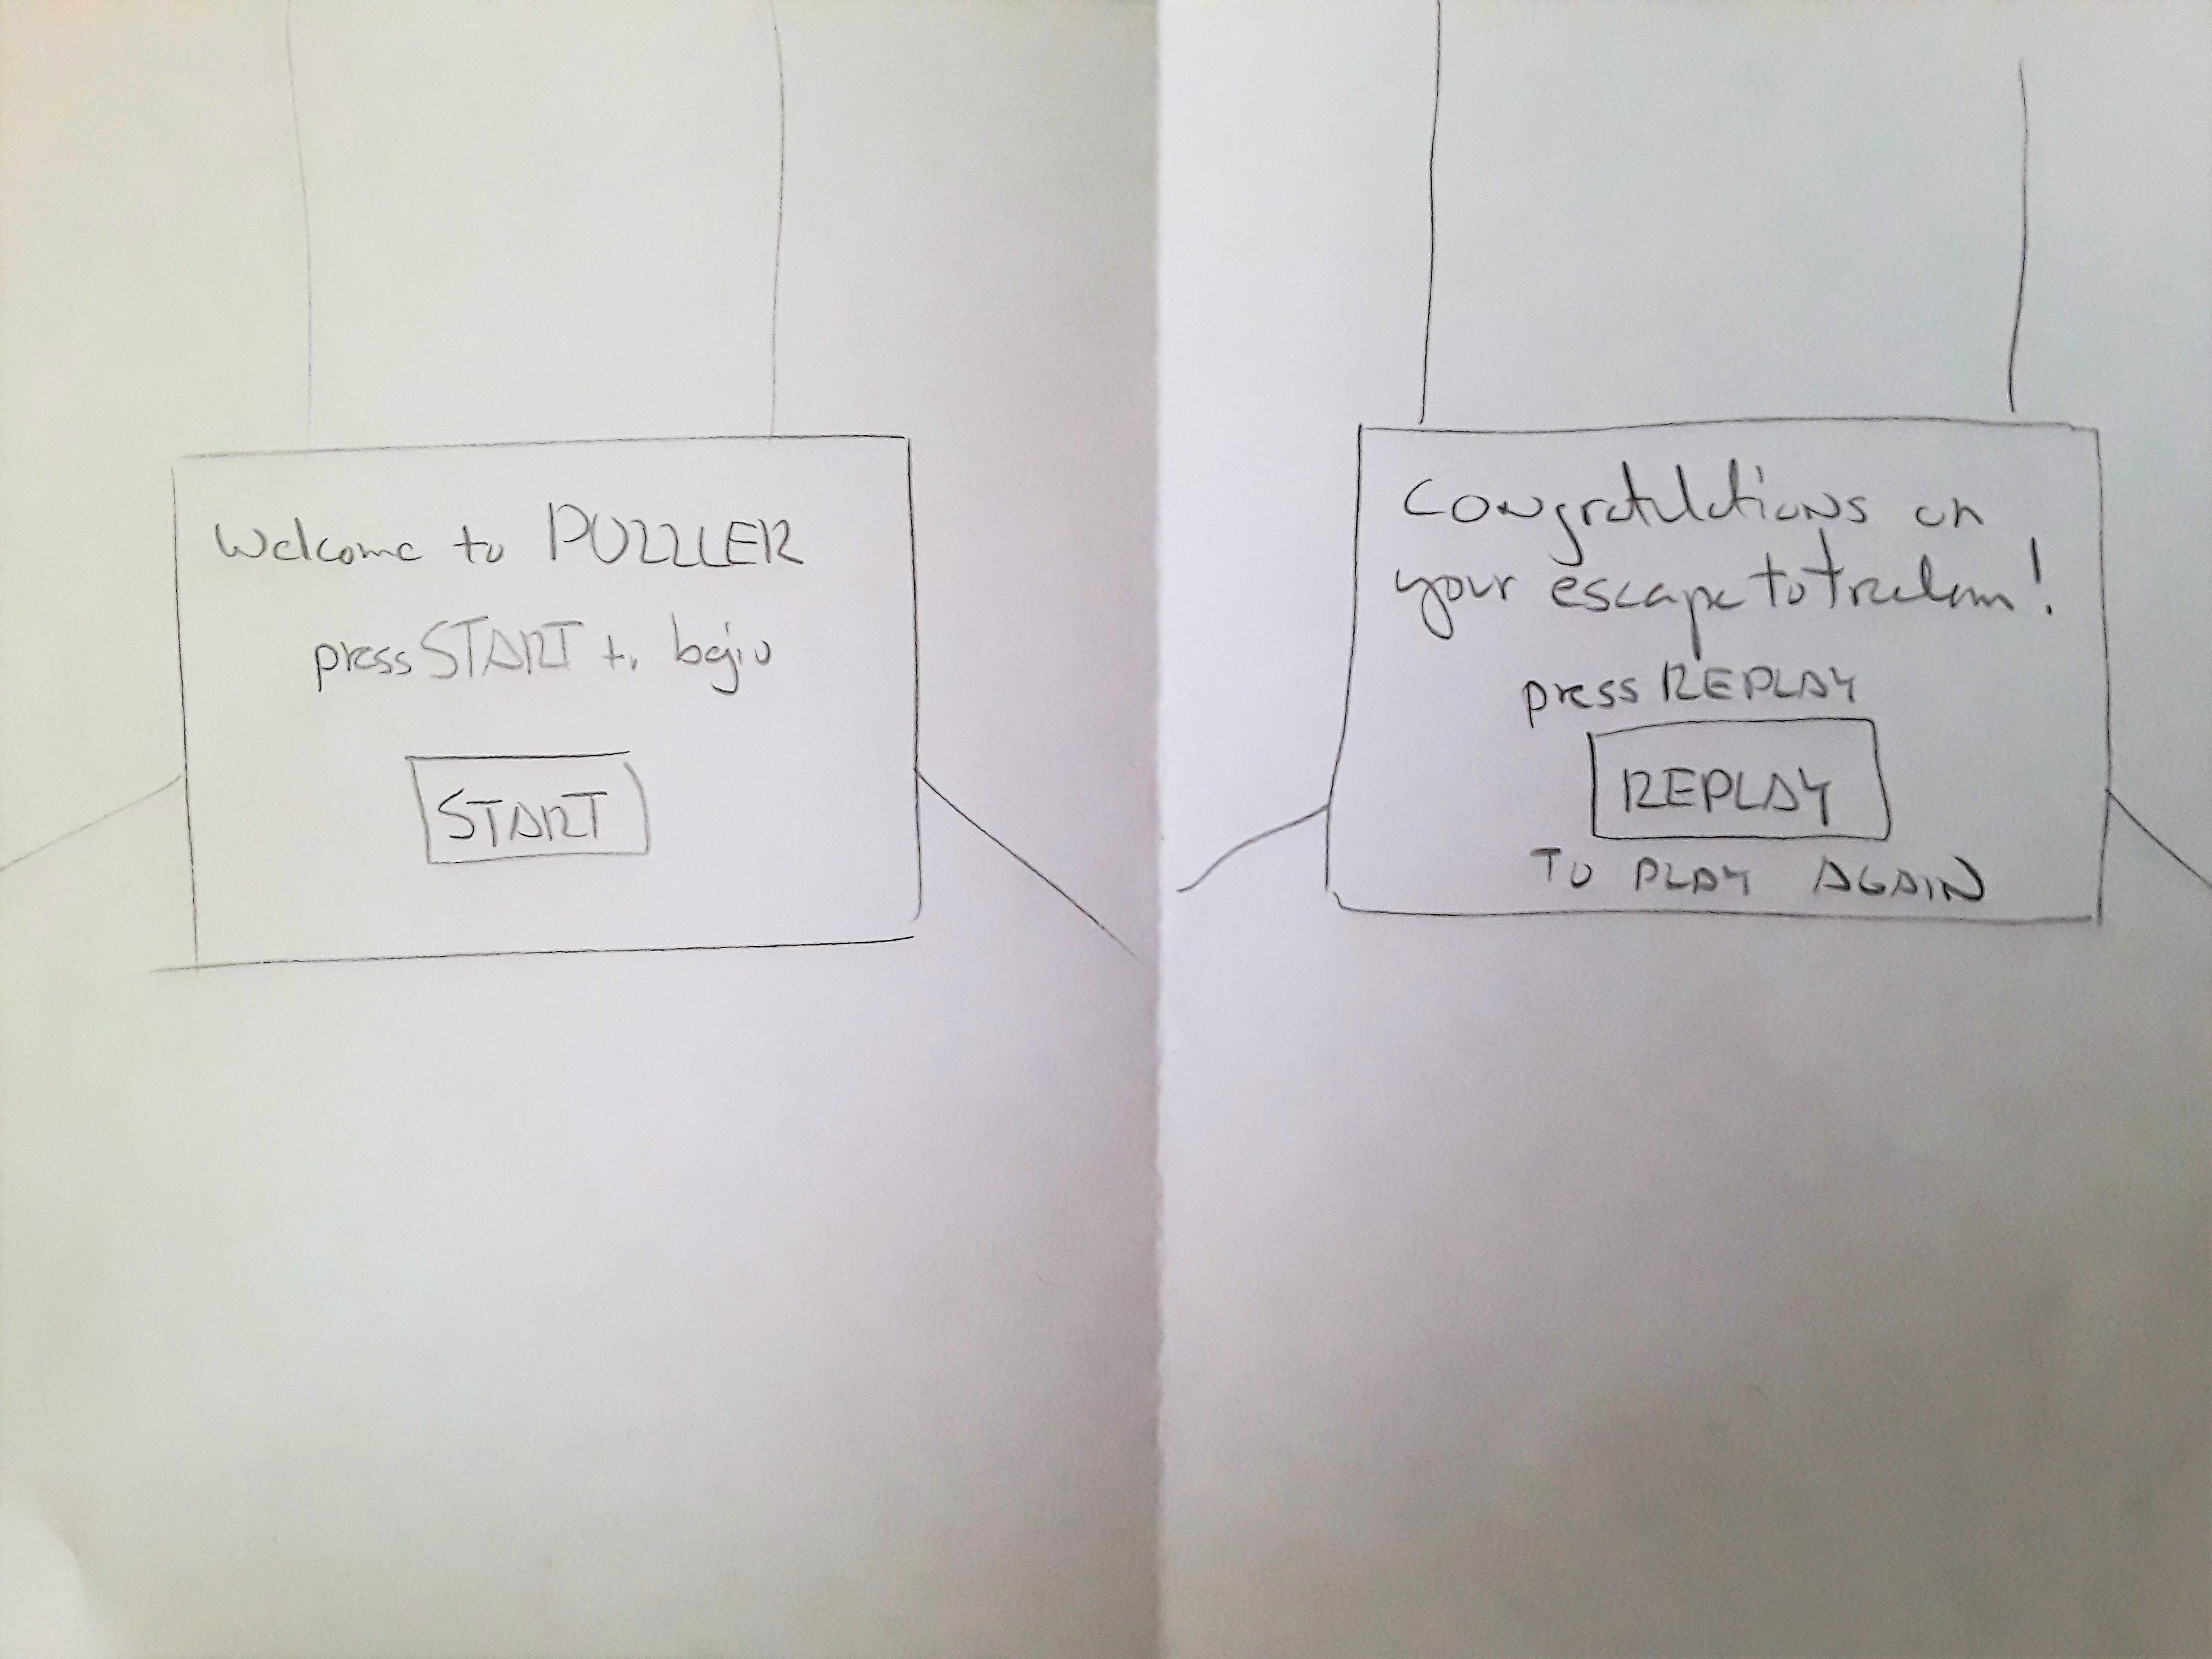 Welcome to PUZZLER
press START to begin
START
Congratulations on
your escape to freedom!
press REPLAY
REPLAY
TO PLAY AGAIN